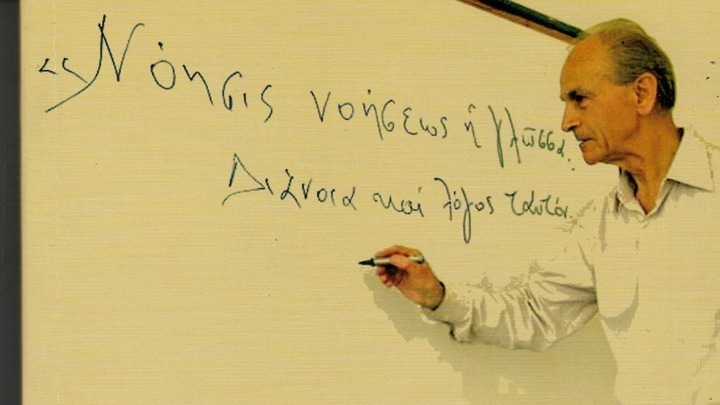 «Νόησις νοήσεως ἡ γλῶσσα.
Διάνοια καί λόγος ταυτόν.